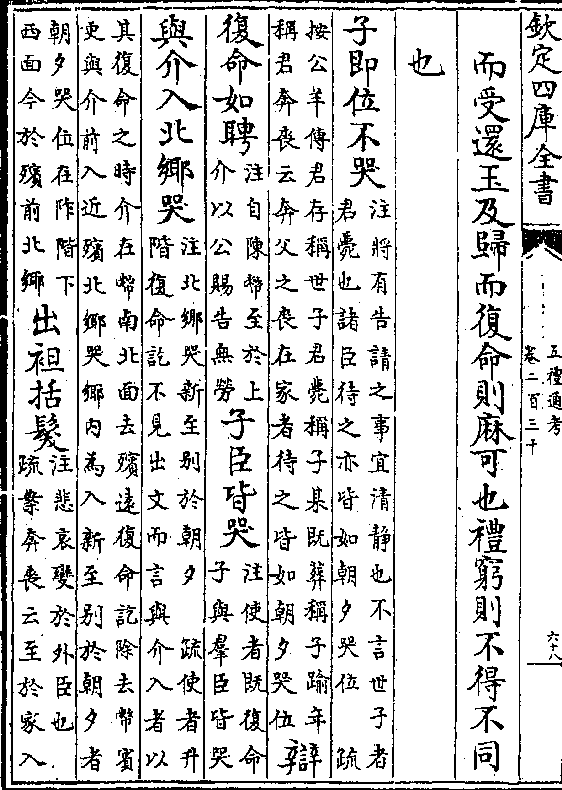 欽定四庫全書
五禮通考
卷二百三十
六十八
而受還玉及歸而復命則麻可也禮窮則不得不同
也
子即位不哭
注將有告請之事宜清靜也不言世子者
君薨也諸臣待之亦皆如朝夕哭位 疏
按公羊傳君存稱世子君薨稱子某既葬稱子踰年
稱君奔喪云奔父之喪在家者待之皆如朝夕哭位
辯
復命如聘
注自陳幣至於上
介以公賜告無勞
子臣皆哭
注使者既復命
子與羣臣皆哭
與介入北鄉哭
注北鄉哭新至别於朝夕 疏使者升
階復命訖不見出文而言與介入者以
其復命之時介在幣南北面去殯遠復命訖除去幣賓
更與介前入近殯北鄉哭鄉内為入新至别於朝夕者
朝夕哭位在阼階下
西面今於殯前北鄉
出袒括髮
注悲哀變於外臣也
疏案奔喪云至於家入